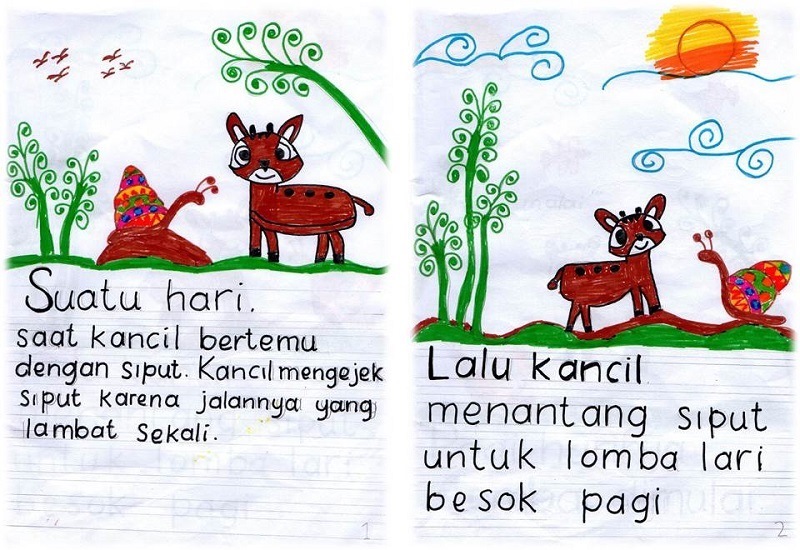 Suatu hari.
saat kancil bertemu
dengan siput. Kancil mengejek
siput karena jalannya yang
lambat sekali.
1
Lalu kancil
menantang siput
untuk lomba lari
besok pagi
2